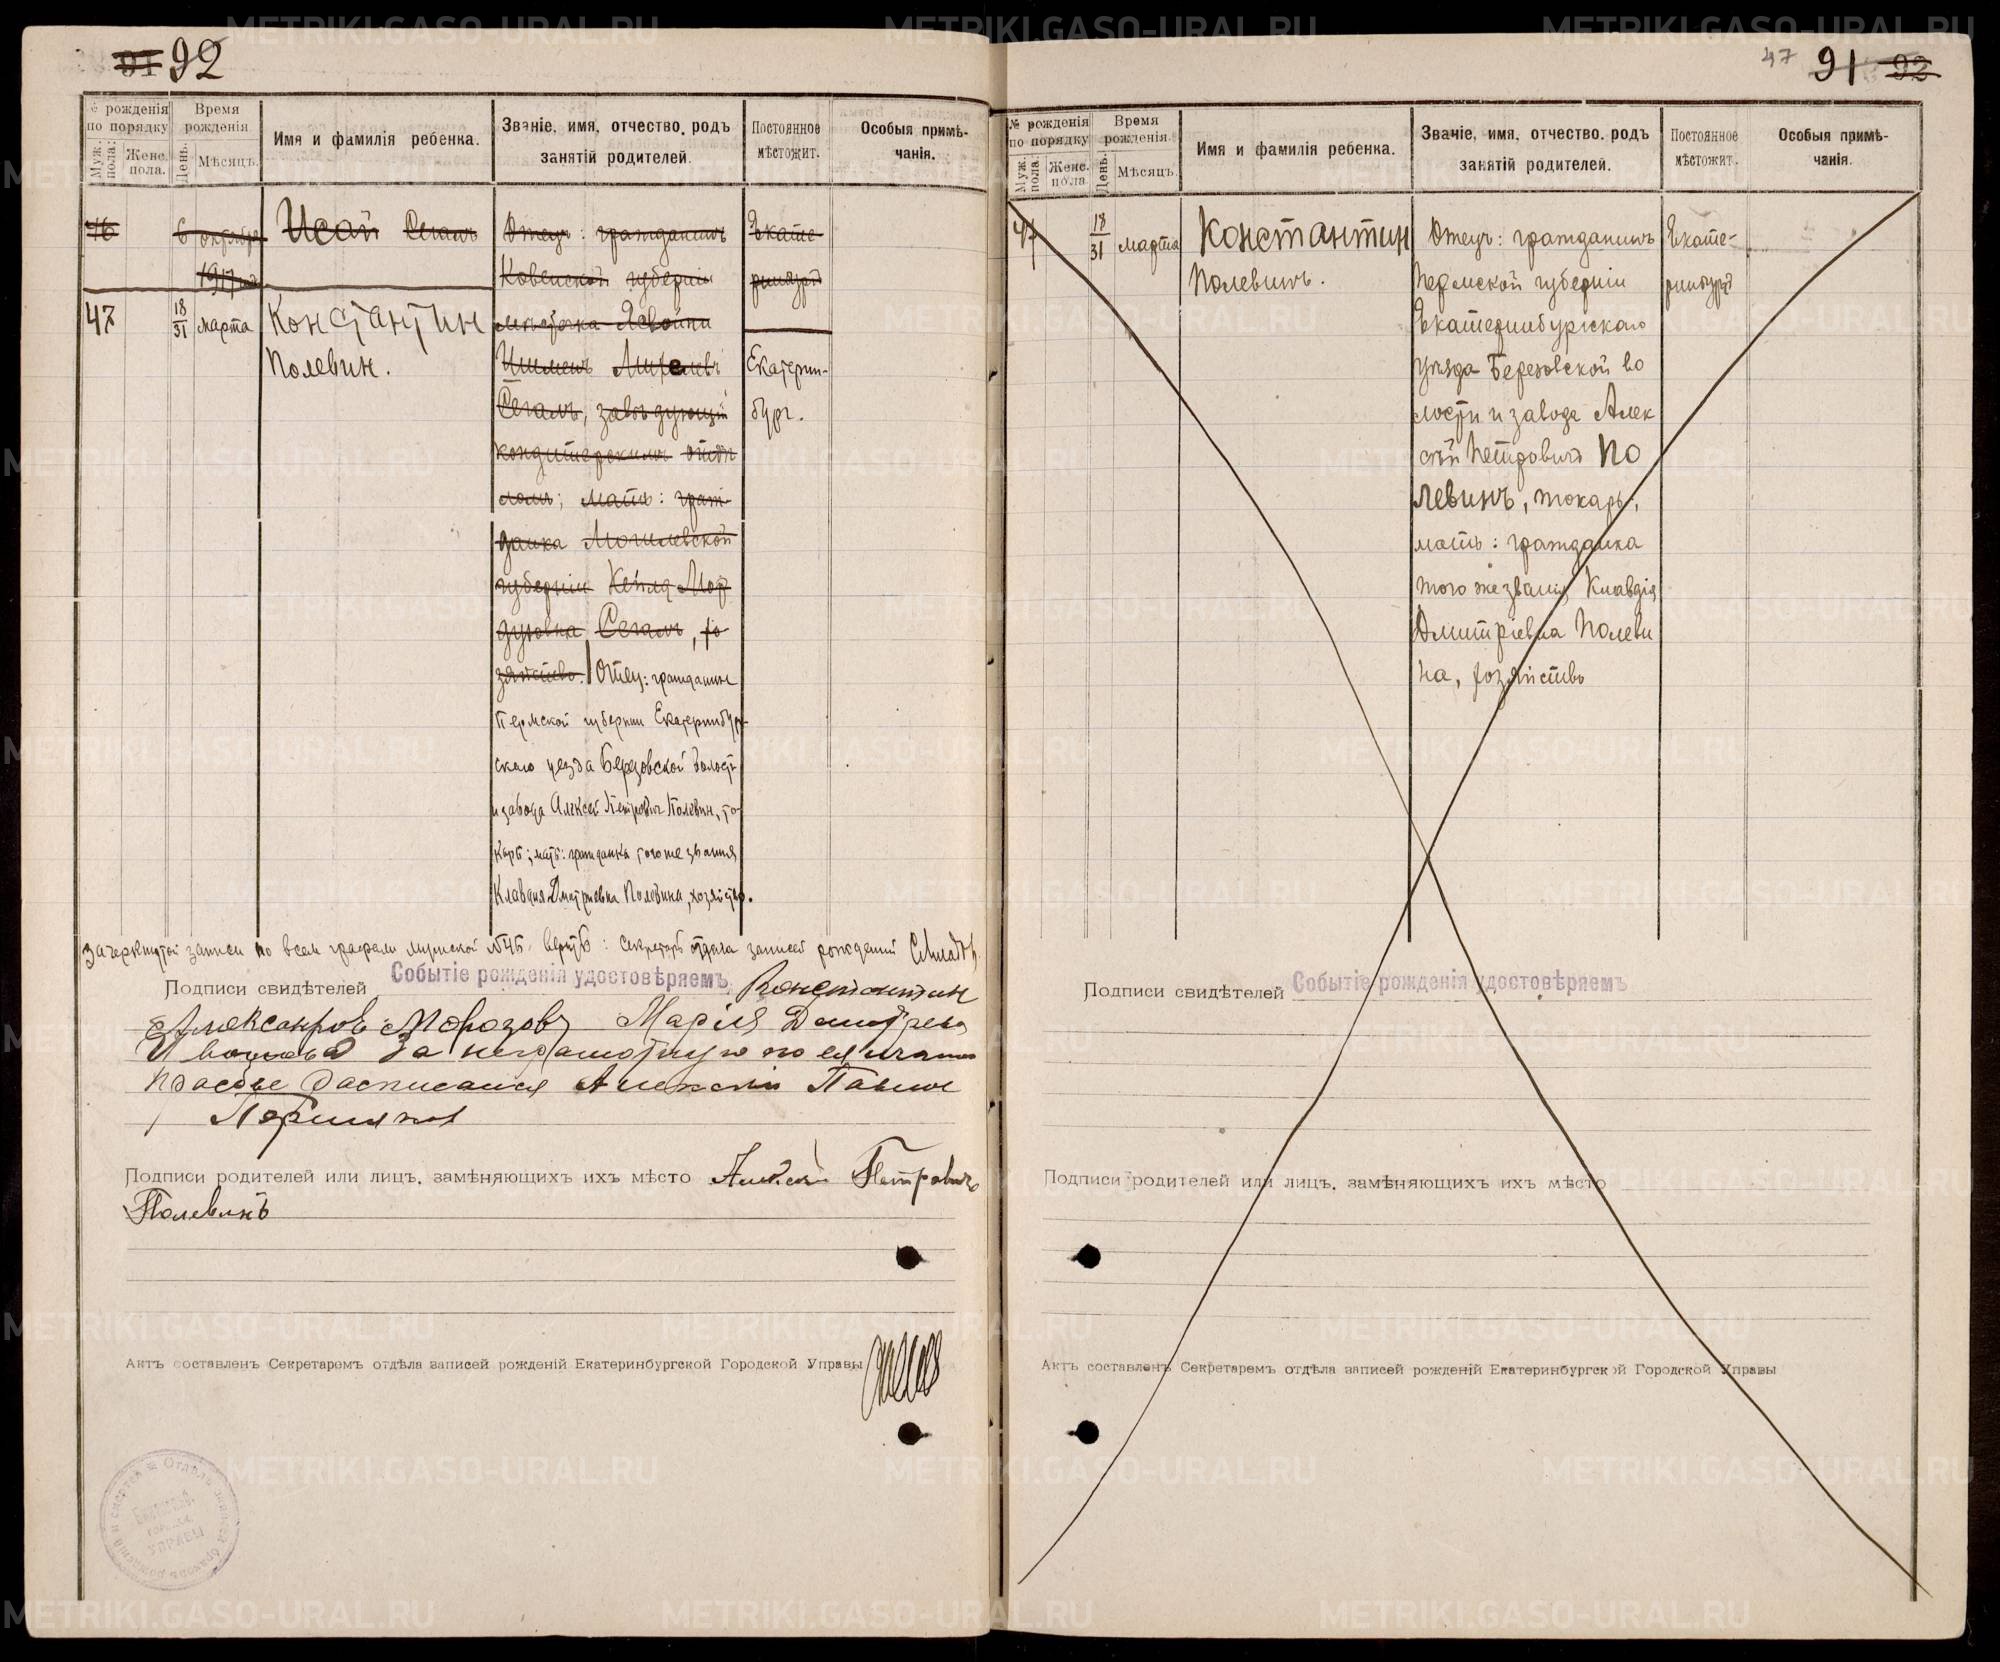 92
№ рожденія по порядку
Муж. пола.
Женс. пола.
Время рожденія
День.
Мѣсяцъ.
Имя и фамилія ребенка.
Званіе, имя, отчество, родъ занятій родителей.
Постоянное мѣстожит.
Особыя примѣчанія.
46
6
октября
1917 года
Исай Сегалъ
Отецъ: гражданинъ
Ковенской губерніи
мѣстечка Ясвойни
Сегалъ, завѣдующій
кондитерскимъ отдѣ
ломъ; мать: граж-
данка Могилевской
губерніи Кейля Мор
духовна Сегалъ, хо
зяйство.
Екате-
ринбургъ
47
18
31
марта
Константин
Полевин.
Отец: гражданин
Пермской губернии Екатеринбур-
скаго уезда Березовской волости
и завода Алексей Петрович Полевин, то-
карь; мать: гражданка того же звания
Клавдия Дмитриевна Полевина, хозяйство.
Екатерин-
бург.
Зачеркнутой записи по всем графам мужской №46. Верить: Секретарь отдела записей рождений
Подписи свидѣтелей Событіе рожденія удостовѣряемъ Константин
Александров Морозовъ Марія
За неграмотную по ея личной
прозбе расписался Алексѣй Павлов
Пермяков
Подписи родителей или лицъ, замѣняющихъ ихъ мѣсто Алексѣй Петровичъ
Полевинъ
Актъ составленъ Секретаремъ отдѣла записей рожденій Екатеринбургской Городской Управы
47 91 92
№ рожденія по порядку
Муж. пола.
Женс. пола
Время рожденія.
День.
Мѣсяцъ.
Имя и фамилія ребенка.
Званіе, имя, отчество. родъ занятій родителей.
Постоянное мѣстожит.
Особыя примѣчанія.
47
18
31
марта
Константин
Полевинъ.
Отецъ: гражданинъ
Пермской губерніи
Екатеринбургскаго
уѣзда Березовской во
лости и завода Алек
сѣй Петровичъ По
левинъ, токарь;
мать: гражданка
того же званія Клавдія
Дмитріевна Полеви
на, хозяйство
Екате-
ринбургъ
Подписи свидѣтелей Событіе рожденія удостовѣряемъ
Подписи родителей или лицъ, замѣняющихъ ихъ мѣсто
Актъ составленъ Секретаремъ отдѣла записей рожденій Екатеринбургской Городской Управы
METRIKI.GASO-URAL.RU